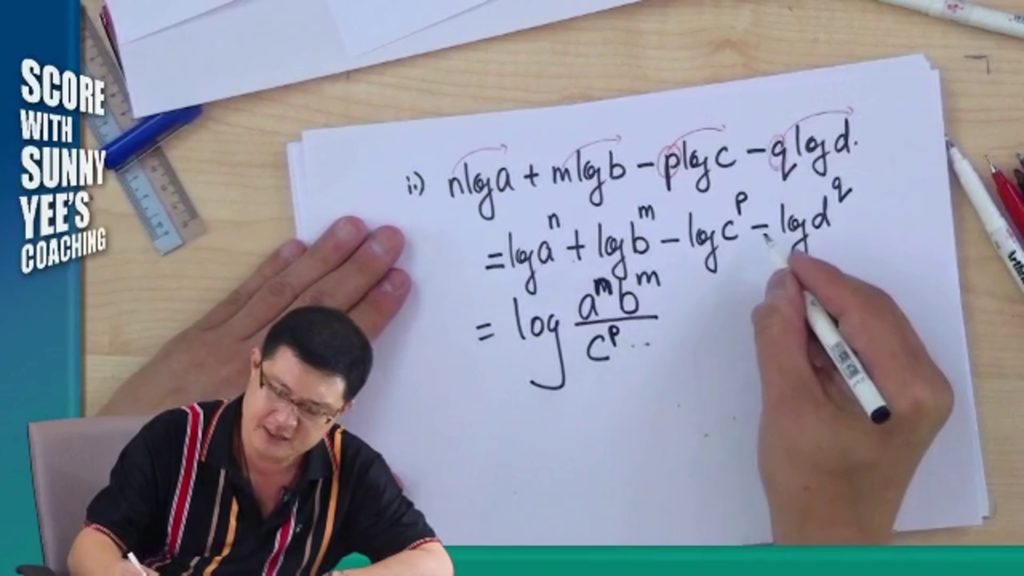 SCORE
WITH
SUNNY
YEE'S
COACHING
ii.) nloga + mlogb - plogc - qlogd.
= loga^n + logb^m - logc^p - logd^q
= log a^m b^m / c^p ..